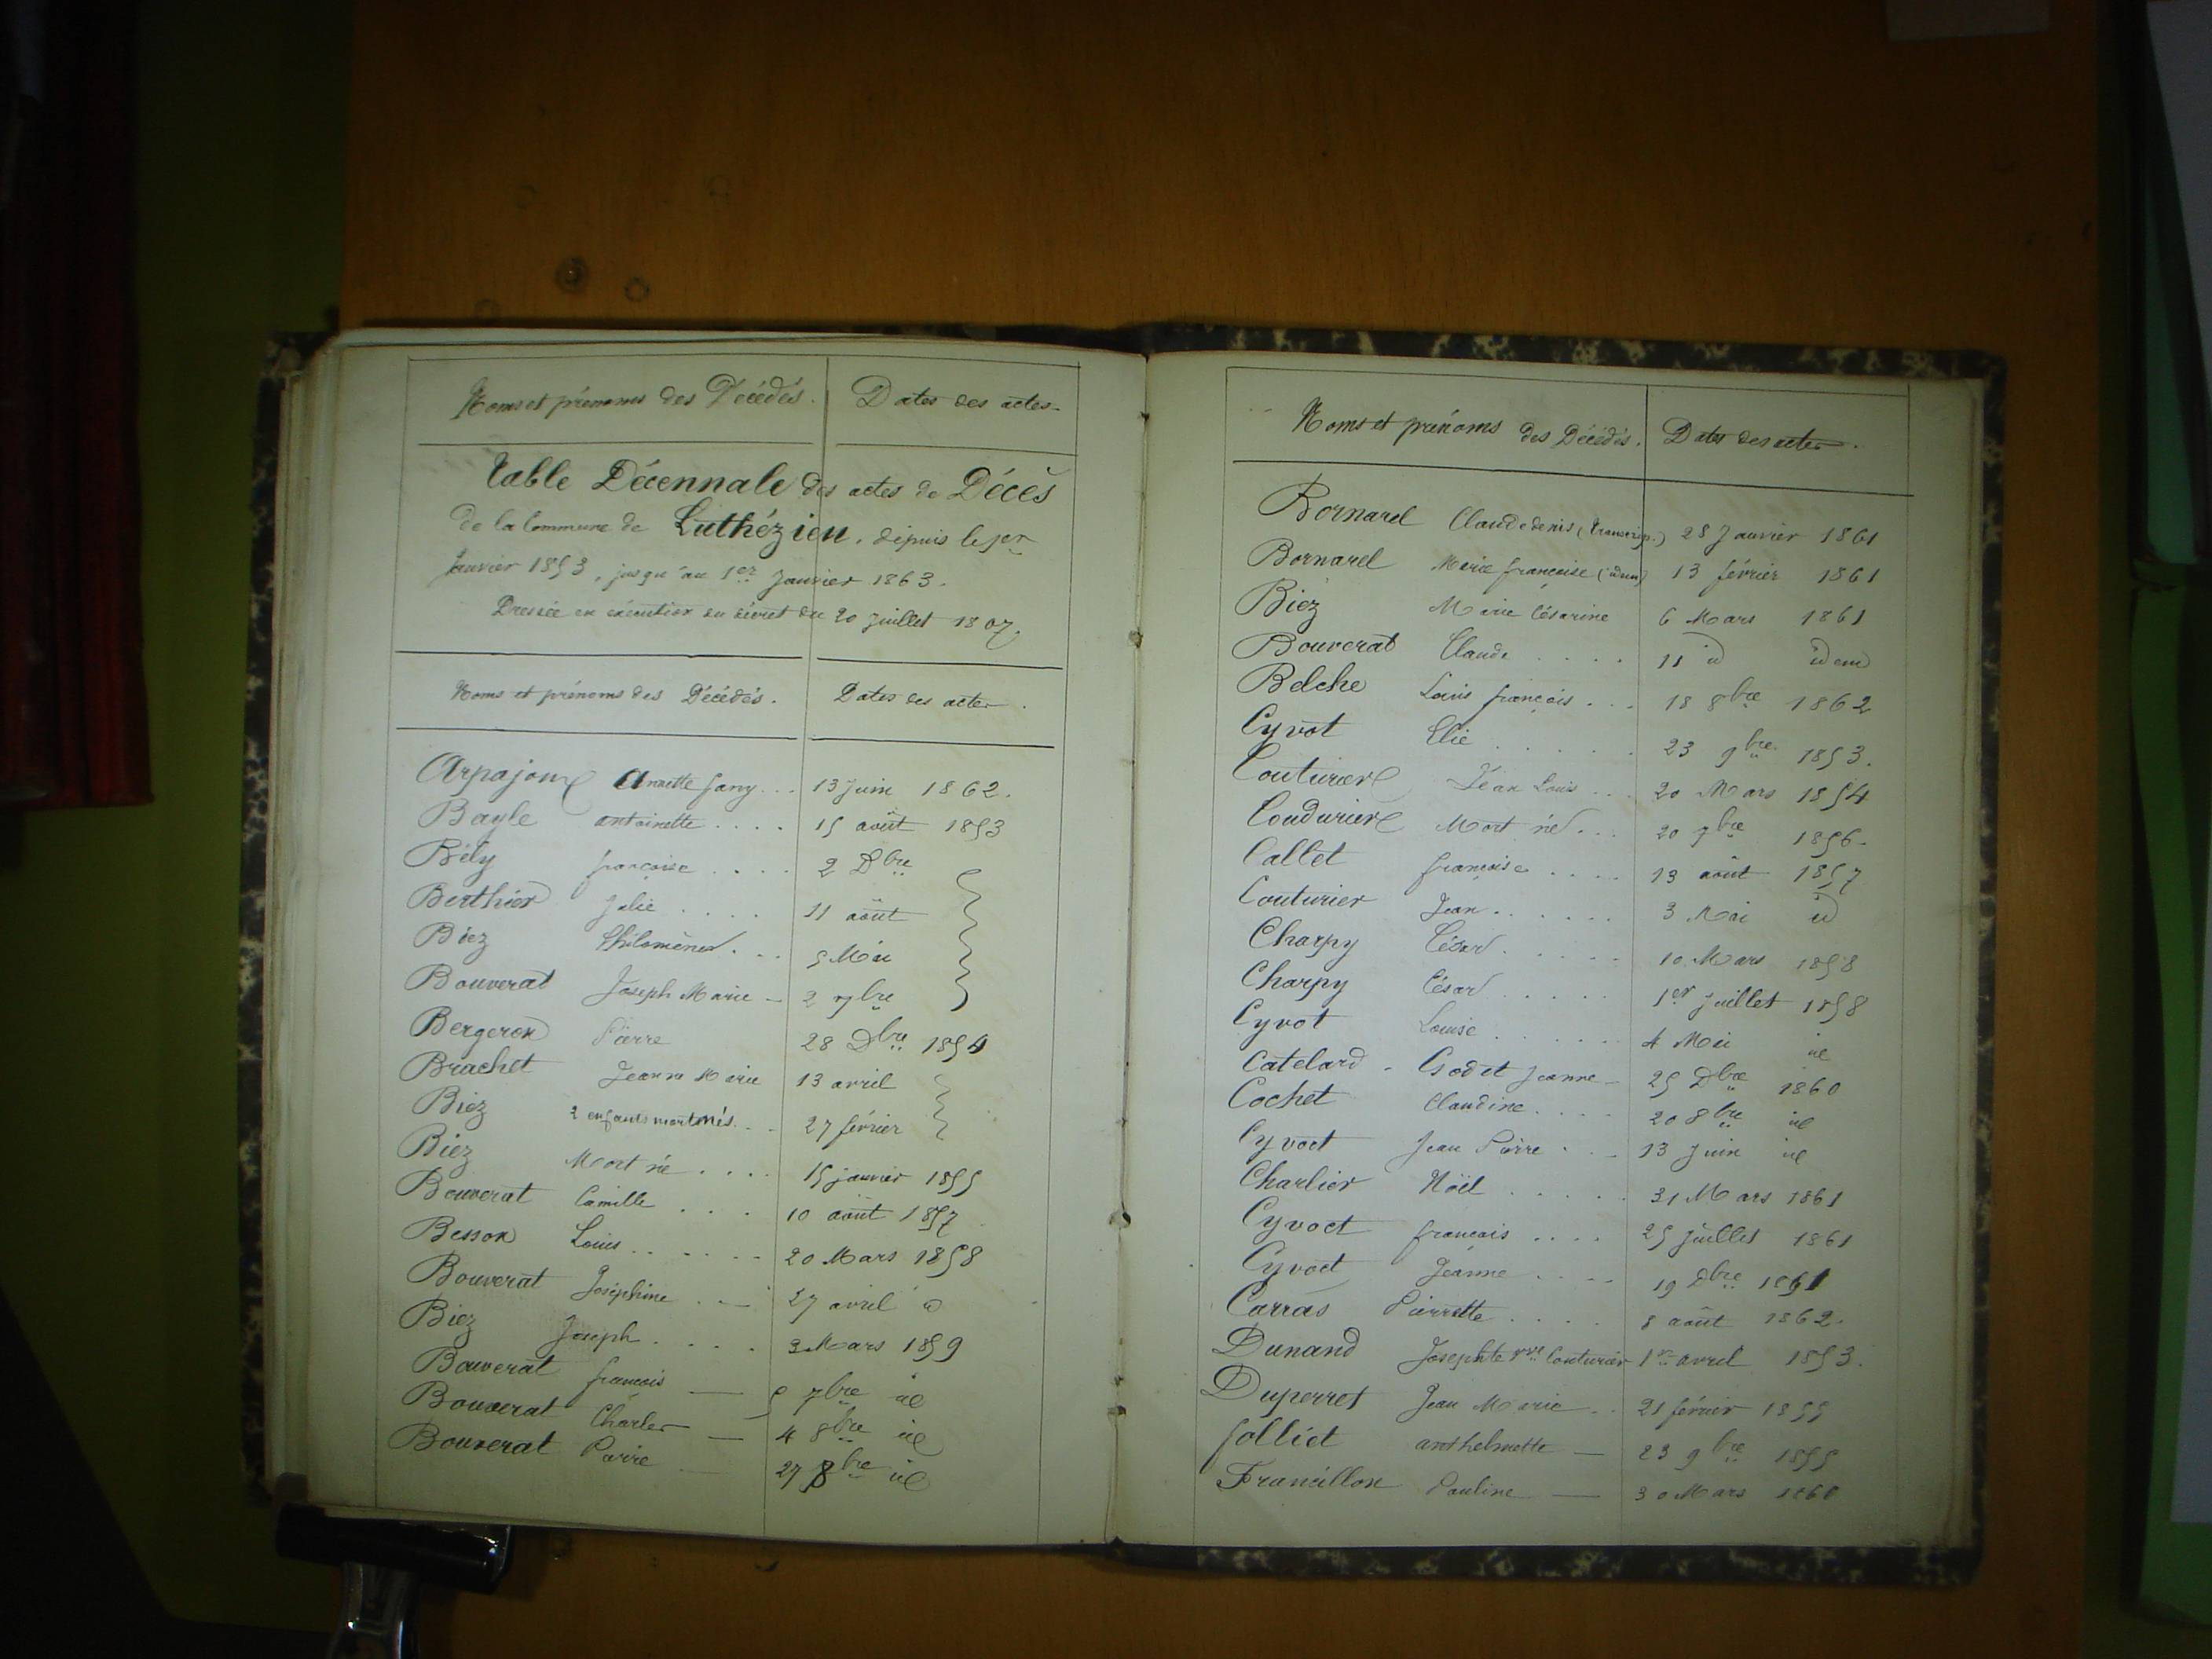 Noms et prénoms des Décédés. Dates des actes.
Table Décennale des actes de Décès
de la Commune de Luthézieu, depuis le 1er
Janvier 1853, jusqu'au 1er Janvier 1863.
Dressée en exécution du décret du 20 Juillet 1807.
Noms et prénoms des Décédés. Dates des actes.
Arpajou Annette fany... 13 Juin 1862.
Bayle antoinette.... 15 août 1853
Bély françoise.... 2 Dbre
Berthier Julie.... 11 août
Biez Philomène... 5 Mai
Bouverat Joseph Marie - 2 7bre
Bergeron Pierre 28 Dbre 1854
Brachet Jeanne Marie 13 avril
Biez 2 enfants mort nés... 27 février
Biez Mort né.... 15 janvier 1855
Bouverat Camille.... 10 août 1857
Besson Louis...... 20 Mars 1858
Bouverat Joséphine.— 27 avril id
Biez Joseph.... 3 Mars 1859
Bouverat françois — 5 7bre id
Bouverat Charles — 4 8bre id
Bouverat Pierre — 27 8bre id
Noms et prénoms des Décédés. Dates des actes.
Bornarel Claude denis (transcrip.) 28 Janvier 1861
Bornarel Marie françoise (idem) 13 février 1861
Biez Marie Césarine 6 Mars 1861
Bouverat Claude.... 11 id idem
Belche Louis françois... 18 8bre 1862
Cyvot Elie..... 23 9bre 1853.
Couturier Jean Louis... 20 Mars 1854
Coudurier Mort né... 20 7bre 1856.
Callet françoise.... 13 août 1857
Couturier Jean...... 3 Mai id
Charpy César..... 10 Mars 1858
Charpy César..... 1er Juillet 1858
Cyvot Louise...... 4 Mai id
Catelard - Godet Jeanne - 25 Dbre 1860
Cochet Claudine.... 20 8bre id
Cyvoct Jean Pierre... 13 Juin id
Charlier Noël..... 31 Mars 1861
Cyvoct françois.... 25 Juillet 1861
Cyvoct Jeanne.... 19 Dbre 1861
Carras Pierrette.... 8 août 1862.
Dunand Josephte vve Couturier 1er avril 1853.
Duperret Jean Marie.. 21 février 1855
folliet anthelmette — 23 9bre 1855
Francillon Pauline — 30 Mars 1860